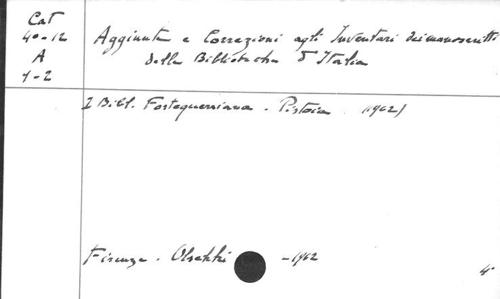 Cat
40-12
A
1-2
Aggiunte e Correzioni agli Inventari dei manoscritti
delle Biblioteche d'Italia
I Bibl. Forteguerriana. Pistoia. 1962)
Firenze. Olschki - 1962
4°